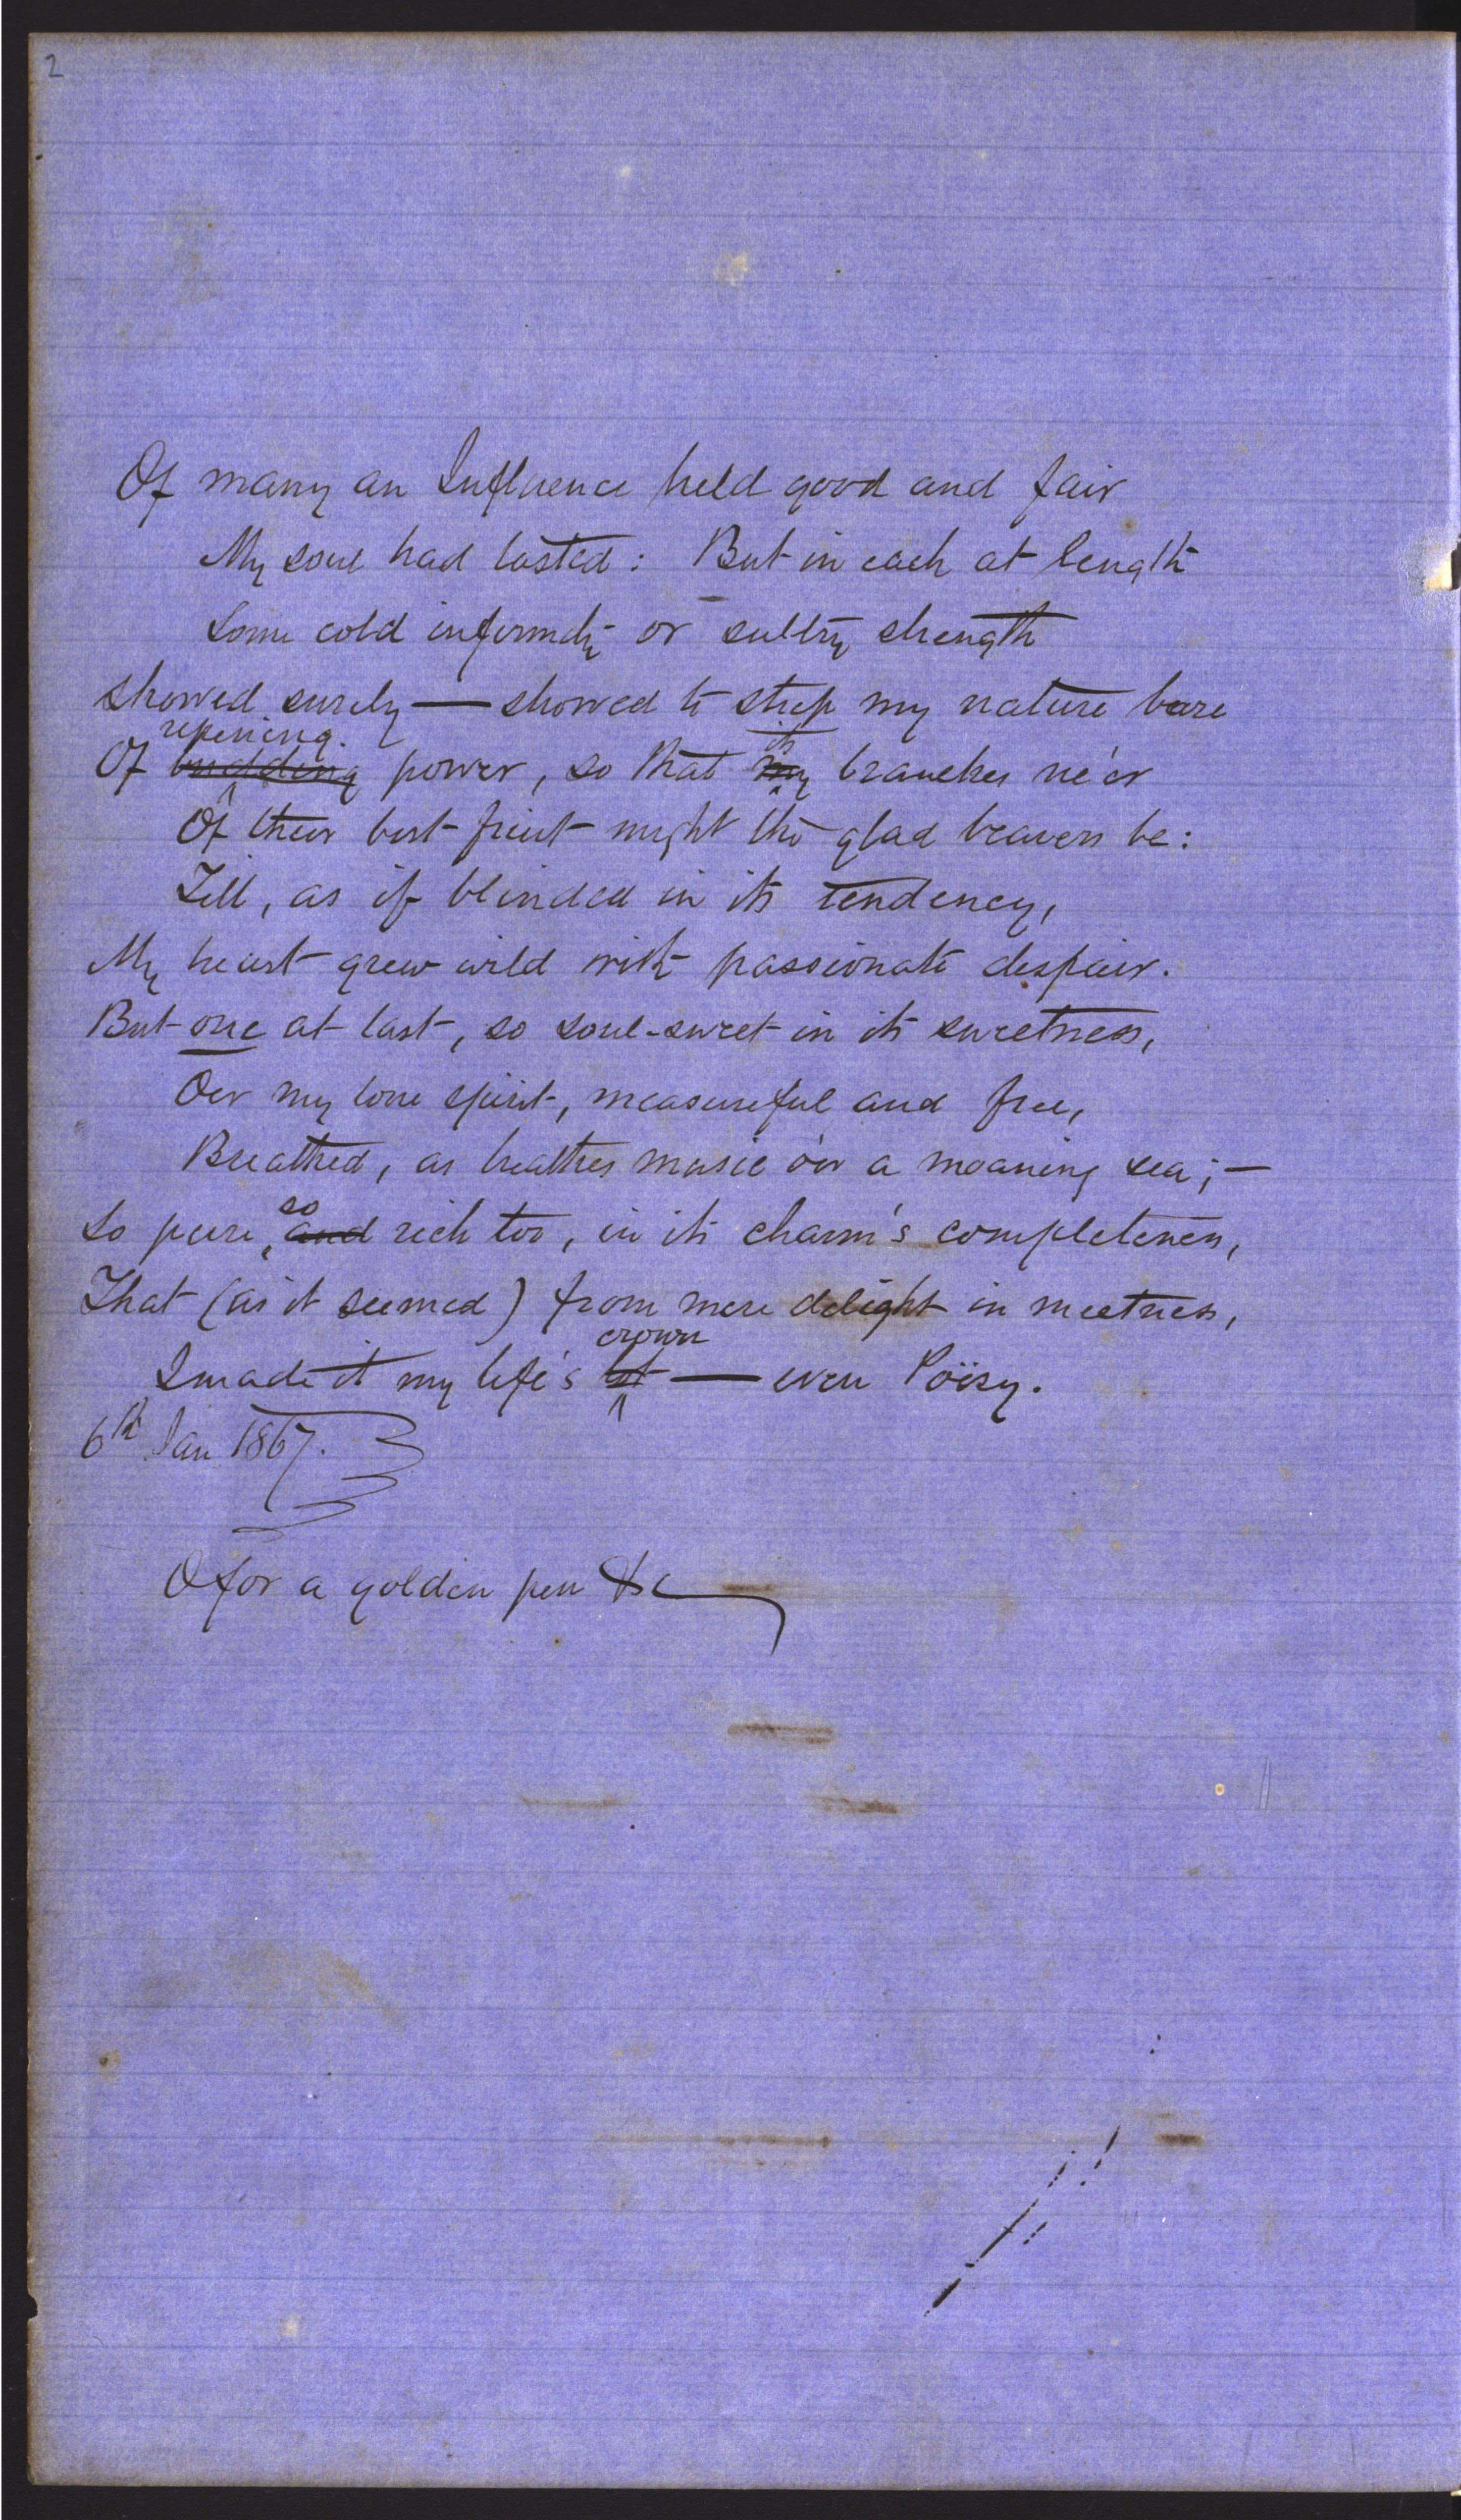 2
Of many an Influence held good and fair
My soul had tasted: But in each at length
Some cold infirmity or sultry strength
Showed surely — showed to strip my nature bare
ripening. its
Of budding power, so that my branches ne'er
Of their best fruit might the glad bearers be:
Till, as if blinded in its tendency,
My heart grew wild with passionate despair.
But one at last, so soul-sweet in its sweetness,
Oer my lone spirit, measureful and free,
Breathed, as breathes music o'er a moaning sea; —
so
So pure, and rich too, in its charm's completeness,
That (as it seemed) from mere delight in meetness,
crown
I made it my life's — even Poësy.
6th Jan 1867.
O for a golden pen &c